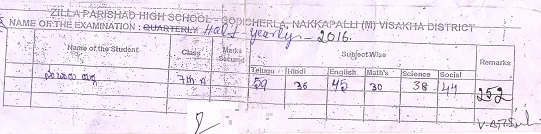 ZILLA PARISHAD HIGH SCHOOL - GODICHERLA, NAKKAPALLI (M) VISAKHA DISTRICT
NAME OF THE EXAMINATION : QUARTERLY Half yearly - 2016.
Name of the Student Class Marks Secured Subject Wise Remarks
Telugu Hindi English Math's Science Social
7th A 59 36 45 30 38 44 252